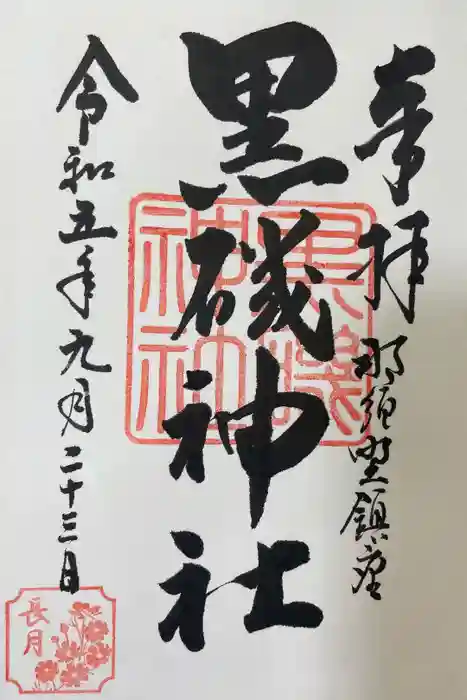 奉拝 那須野鎮座
黒磯神社
令和五年九月二十三日
黒磯神社
長月